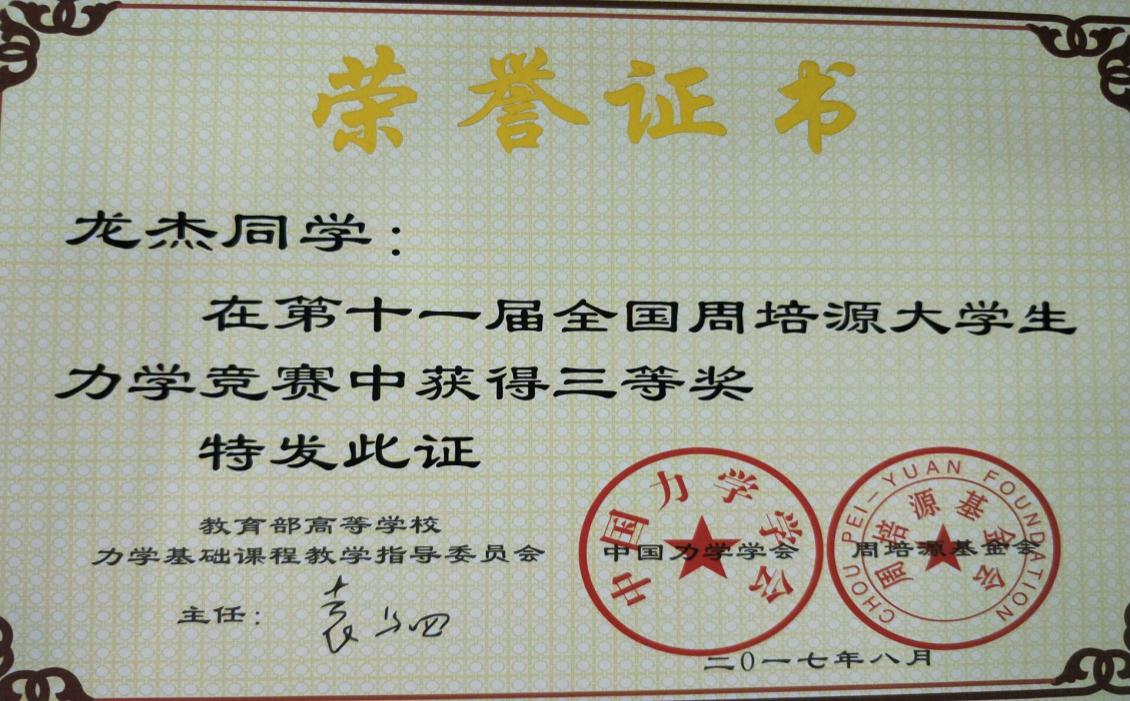 荣誉证书
龙杰同学：
在第十一届全国周培源大学生
力学竞赛中获得三等奖
特发此证
教育部高等学校
力学基础课程教学指导委员会
主任：
中国力学学会
中国力学学会
周培源基金会
CHOU PEI-YUAN FOUNDATION
周培源基金会
二〇一七年八月